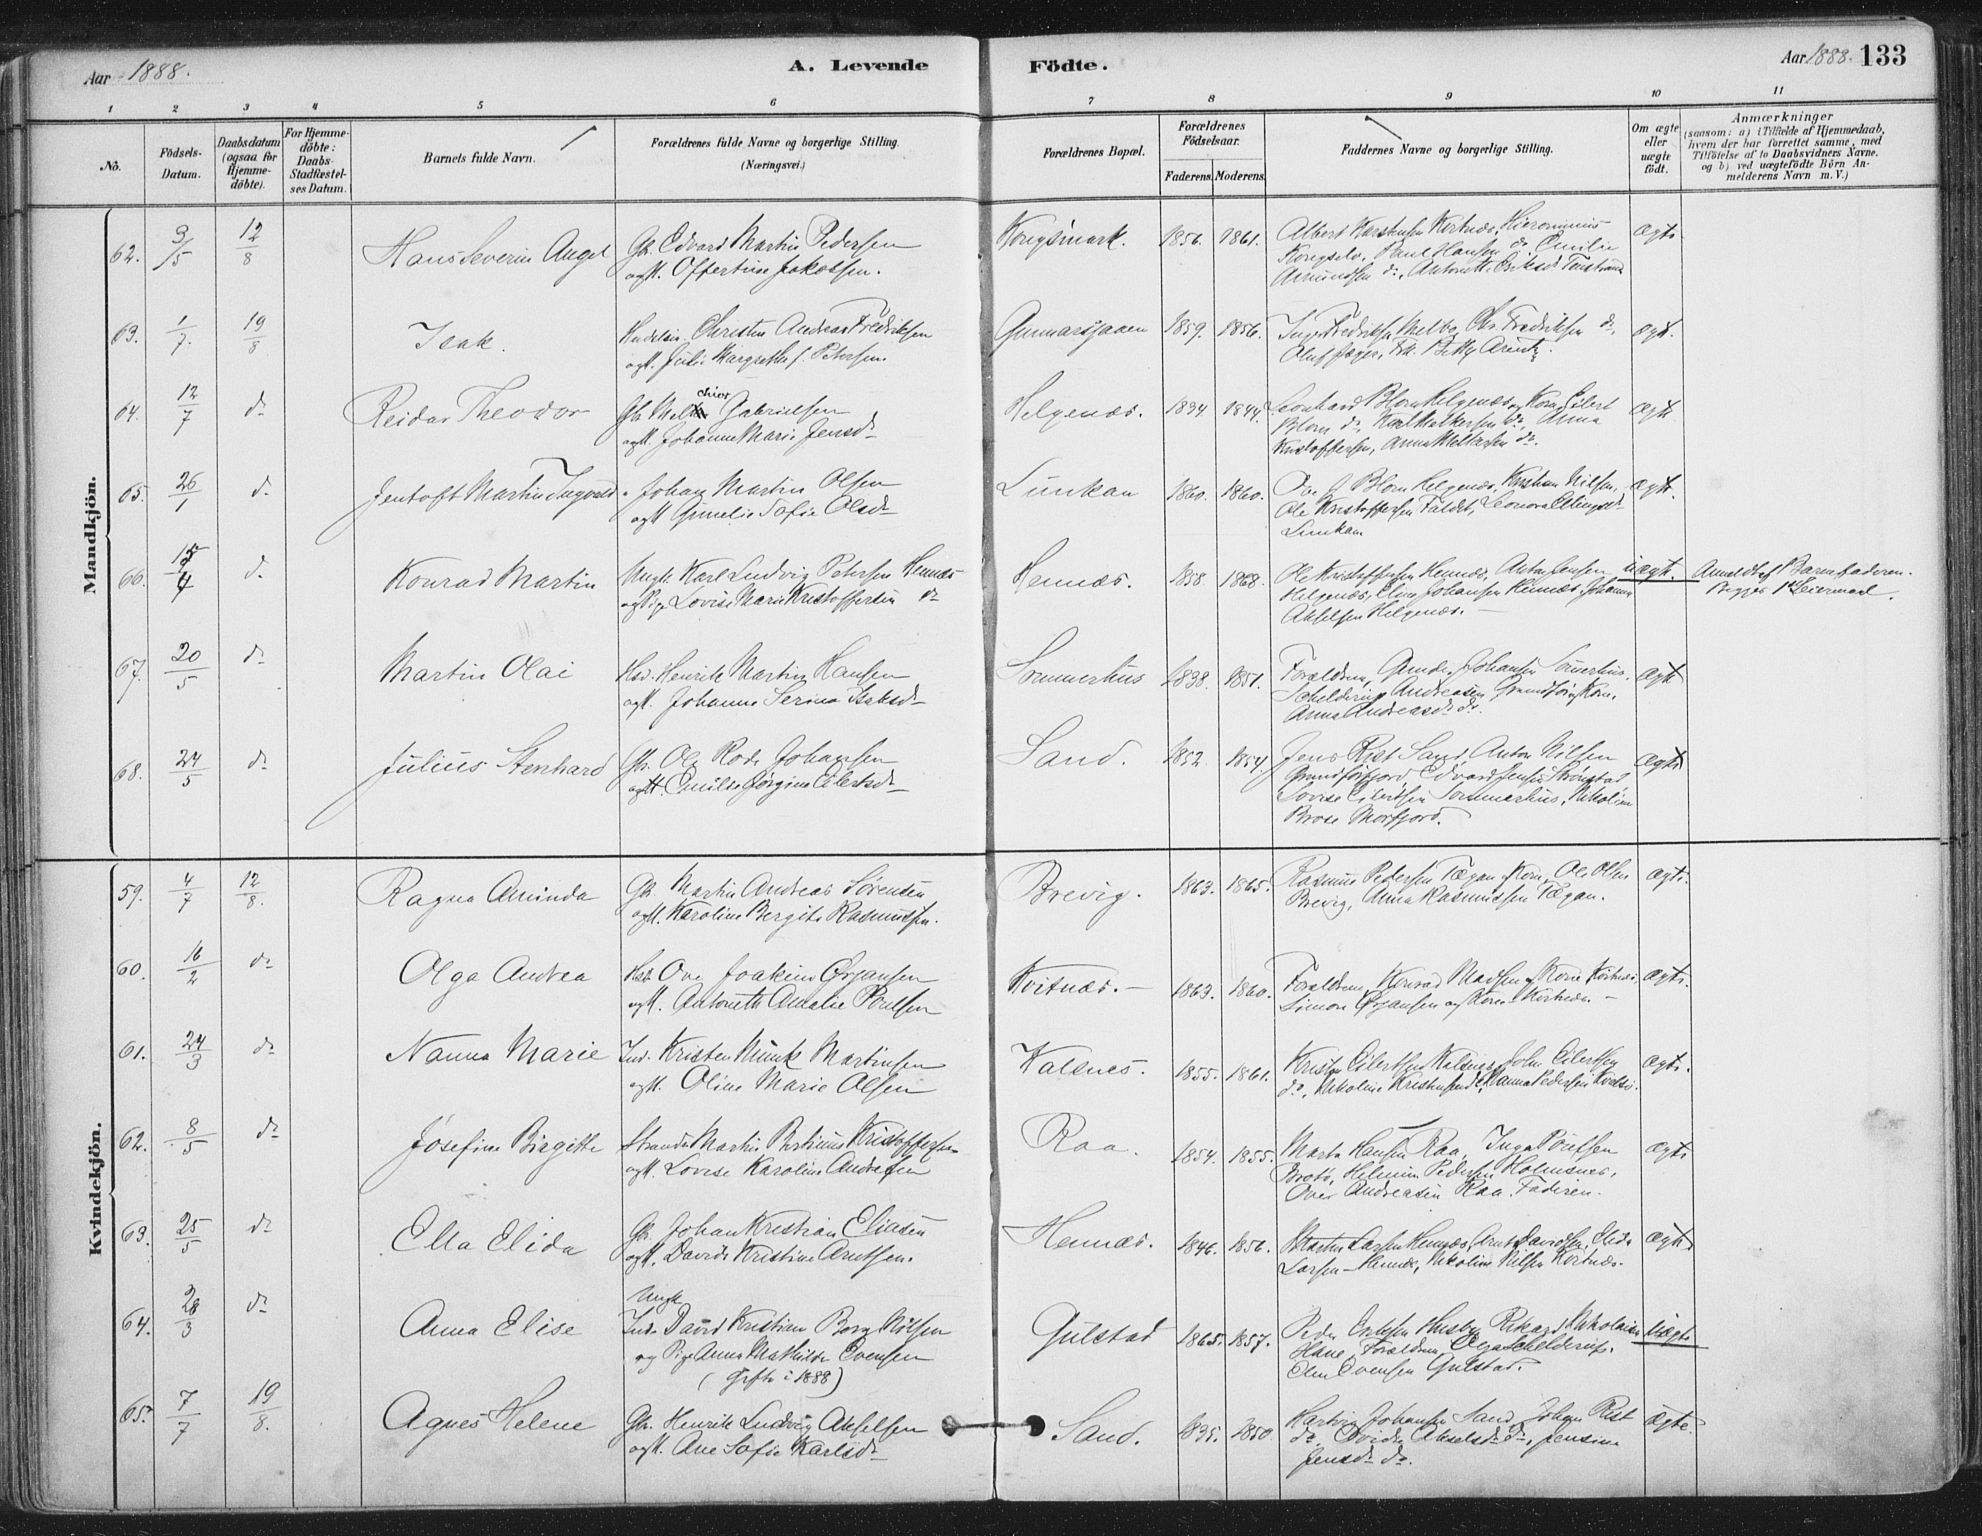 Aar 1888.
A. Levende
Födte.
Aar 1888. 133
1 2 3 4 5 6 7 8 9 10 11
No.
Födsels-
Datum.
Daabsdatum
(ogsaa for
Hjemme-
döbte).
For Hjemme-
döbte:
Daabs-
Stadfæstel-
ses Datum.
Barnets fulde Navn.
Forældrenes fulde Navne og borgerlige Stilling
(Næringsvei.)
Forældrenes Bopæl.
Forældrenes
Födselsaar.
Faderens. Moderens.
Faddernes Navne og borgerlige Stilling.
Om ægte
eller
uægte
födt.
Anmærkninger
(saasom: a) i Tilfælde af Hjemmedaab,
hvem der har forrettet samme, med
Tilföielse af to Daabsvidners Navne.
og b) ved uægtefödte Börn An-
melderens Navn m. V.)
Mandkjön.
62. 3/5 12/8 Hans Severin Angel
Gbr. Edvard Martin Pedersen
og H. Offertine Jakobsen.
Kongsmark. 1856. 1861.
Albert Karstensen Kortnæs, Hieronimus
Kongselv, Paul Hansen do Emilie
Amundsen do, Antonette Eriksd.
Ægte
63. 1/7 19/8 Isak.
Christen Andreas Fredriksen
og H. Julie Margrethe f. Petersen.
Gunnarsjaaen 1859. 1856.
Inger Fredriksen Melbo, Chr. Fredriksen do,
Oluf Jæger, Frk. Betty Arentz.
ægt.
64. 12/7 do Reidar Theodor
Gbr. Melchior Gabrielsen
og H. Johanne Marie Jensd.
Helgenæs. 1834 1844.
Leonhard Blom Helgenæs og Kone, Eilert
Blom do, Karl Melkersen do, Anna
Kristoffersen, Anna Melkersen do.
Ægte
65. 26/1 do Jentoft Martin Ingvald
Johan Martin Olsen
og H. Gunelie Sofie Olsd.
Lunkan 1860. 1860.
Ove J. Blom Helgenæs, Kristian Nilsen,
Ole Kristoffersen Faldet, Leonora Ellingsd.
Lunkan
Ægte.
66. 15/4 do Konrad Martin
Ungk. Karl Ludvig Petersen Hennæs
og Pige Lovise Marie Kristoffersen do
Hennæs. 1858. 1868.
Ole Kristoffersen Hennæs, Anton Jensen
Helgenæs, Elen Johansen Hennæs, Johanna
Akselsen Helgenæs.
uægte. Anmeldt af Barnefaderen.
Begges 1ste Leiermaal.
67. 20/5 do Martin Olai
Hsd. Henrik Martin Hansen
og H. Johanne Serina Isaksd.
Sommerhus 1838. 1851.
Forældrene, Johansen Sommerhus,
Schelderup Andreasen Grundfør og Kone,
Anna Andreasd. do.
Ægte
68. 24/5 do Julius Stenhard
Gbr. Ole Rode Johansen
og H. Emilie Jørgine Eilertsd.
Sand. 1852. 1854
Jens Rist Sand, Anton Nilsen
Grundførfjord, Edvard Jensen Strønstad
Lovise Eilertsen Sommerhus, Nikoline
Brose Morfjord.
Ægte
Kvindekjön.
59. 4/7 12/8. Ragna Aminda
Gbr. Martin Andreas Sørensen
og H. Karoline Bergite Rasmussen.
Brevig. 1863. 1865.
Rasmus Pedersen Tægan og Kone, Ole Olsen
Brevig, Anna Rasmussen Tægan.
ægte.
60. 16/2 do Olga Andrea
Hsb. Ove Joakim Ørjansen
og H. Antonette Amalie Poulsen
Kvitnæs. 1863. 1860.
Forældrene, Konrad Madsen og Kone Kvitnæs,
Simon Ørjansen og Kone
Ægte.
61. 24/3 do Nanna Marie
Ind. Kristen Munk Martinsen
og H. Oline Marie Olsen
Kalsnes. 1855. 1861.
Kristen Eilertsen Kalsnes, John Eilertsen
do, Nikoline Kristensen do, Hanna Pedersen
Ægte.
62. 8/5 do Josefine Birgitte
Strands. Martin Bertinus Kristoffersen
og H. Lovise Karoline Andresen
Raa. 1854. 1855.
Marta Hansen Raa, Inga Poulsen
Brotø, Helmine Pedersen Holmsnes,
Over Andreasen Raa. Faderen.
Ægte
63. 25/5 do Ella Elida
Gbr. Johan Kristian Eliasen
og H. Davida Kristine Arntsen.
Hennæs. 1846. 1856.
Martin Larsen Hennæs, Arnt Davidsen, Elida
Larsen Hennæs, Nikoline Nilsen Kvitnæs.
Ægte
64. 28/3 do Anna Elise
Ungk.
Ind. David Kristian Borg Nilsen
og Pige Anna Mathilde Evensen
(gifte i 1888)
Gulstad 1865. 1857.
Peder Husby, Rikard Nikolaisen
Hane, Forældrene, Olga Schelderup,
Elen Evensen Gulstad.
Uægte
65. 7/7 19/8. Agnes Helene
Gbr. Henrik Ludvig Akselsen
og H. Ane Sofie Karlsd.
Sand. 1835. 1850.
Hartvig Johansen Sand, Johan Rist
do, Ovidia Akselsd. do, Jensine
Jensd. do.
Ægte